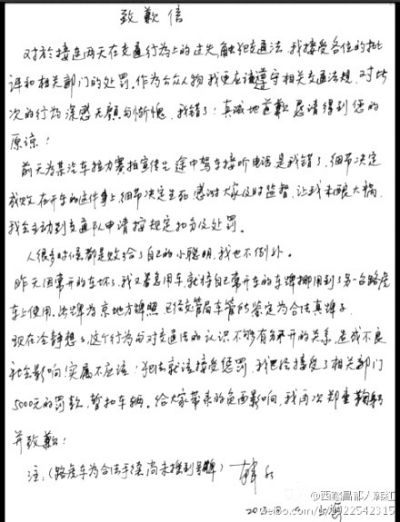 致歉信
对于接连两天在交通行为上的过失,触犯交通法,我接受各位的批
评和相关部门的处罚。作为公众人物我更应该遵守相关交通法规,对此
次的行为深感无颜与惭愧,我错了!真诚地道歉恳请得到您的
原谅!
前天为某汽车接力赛拍宣传 途中驾车接听电话是我错了,细节决定
成败,在开车的这件事上,细节决定生死 感谢大家及时监督,让我未酿大祸,
我会主动到交通队申请按规定扣分及处罚。
人很多时候都是败给了自己的小聪明,我也不例外。
昨天因常开的车坏了,我又着急用车,就将自己常开的车牌挪用到了另一台路虎
车上使用,此牌为京地方牌照 已经交管局车管所鉴定为合法真牌子
现在冷静想 ,这个行为与对交通法的认识不够有绝 的关系,造成不良
社会影响!实属不应该!犯法就该接受惩罚,我已经接受了相关部门
5000元的罚款,暂扣车辆。给大家带来的负面影响,我再次郑重鞠躬
并致歉!
注:(路虎车为合法手续尚未挂到号牌) 韩红
2013.8.
@西藏昌都人韩红
weibo.com/u/1922542315